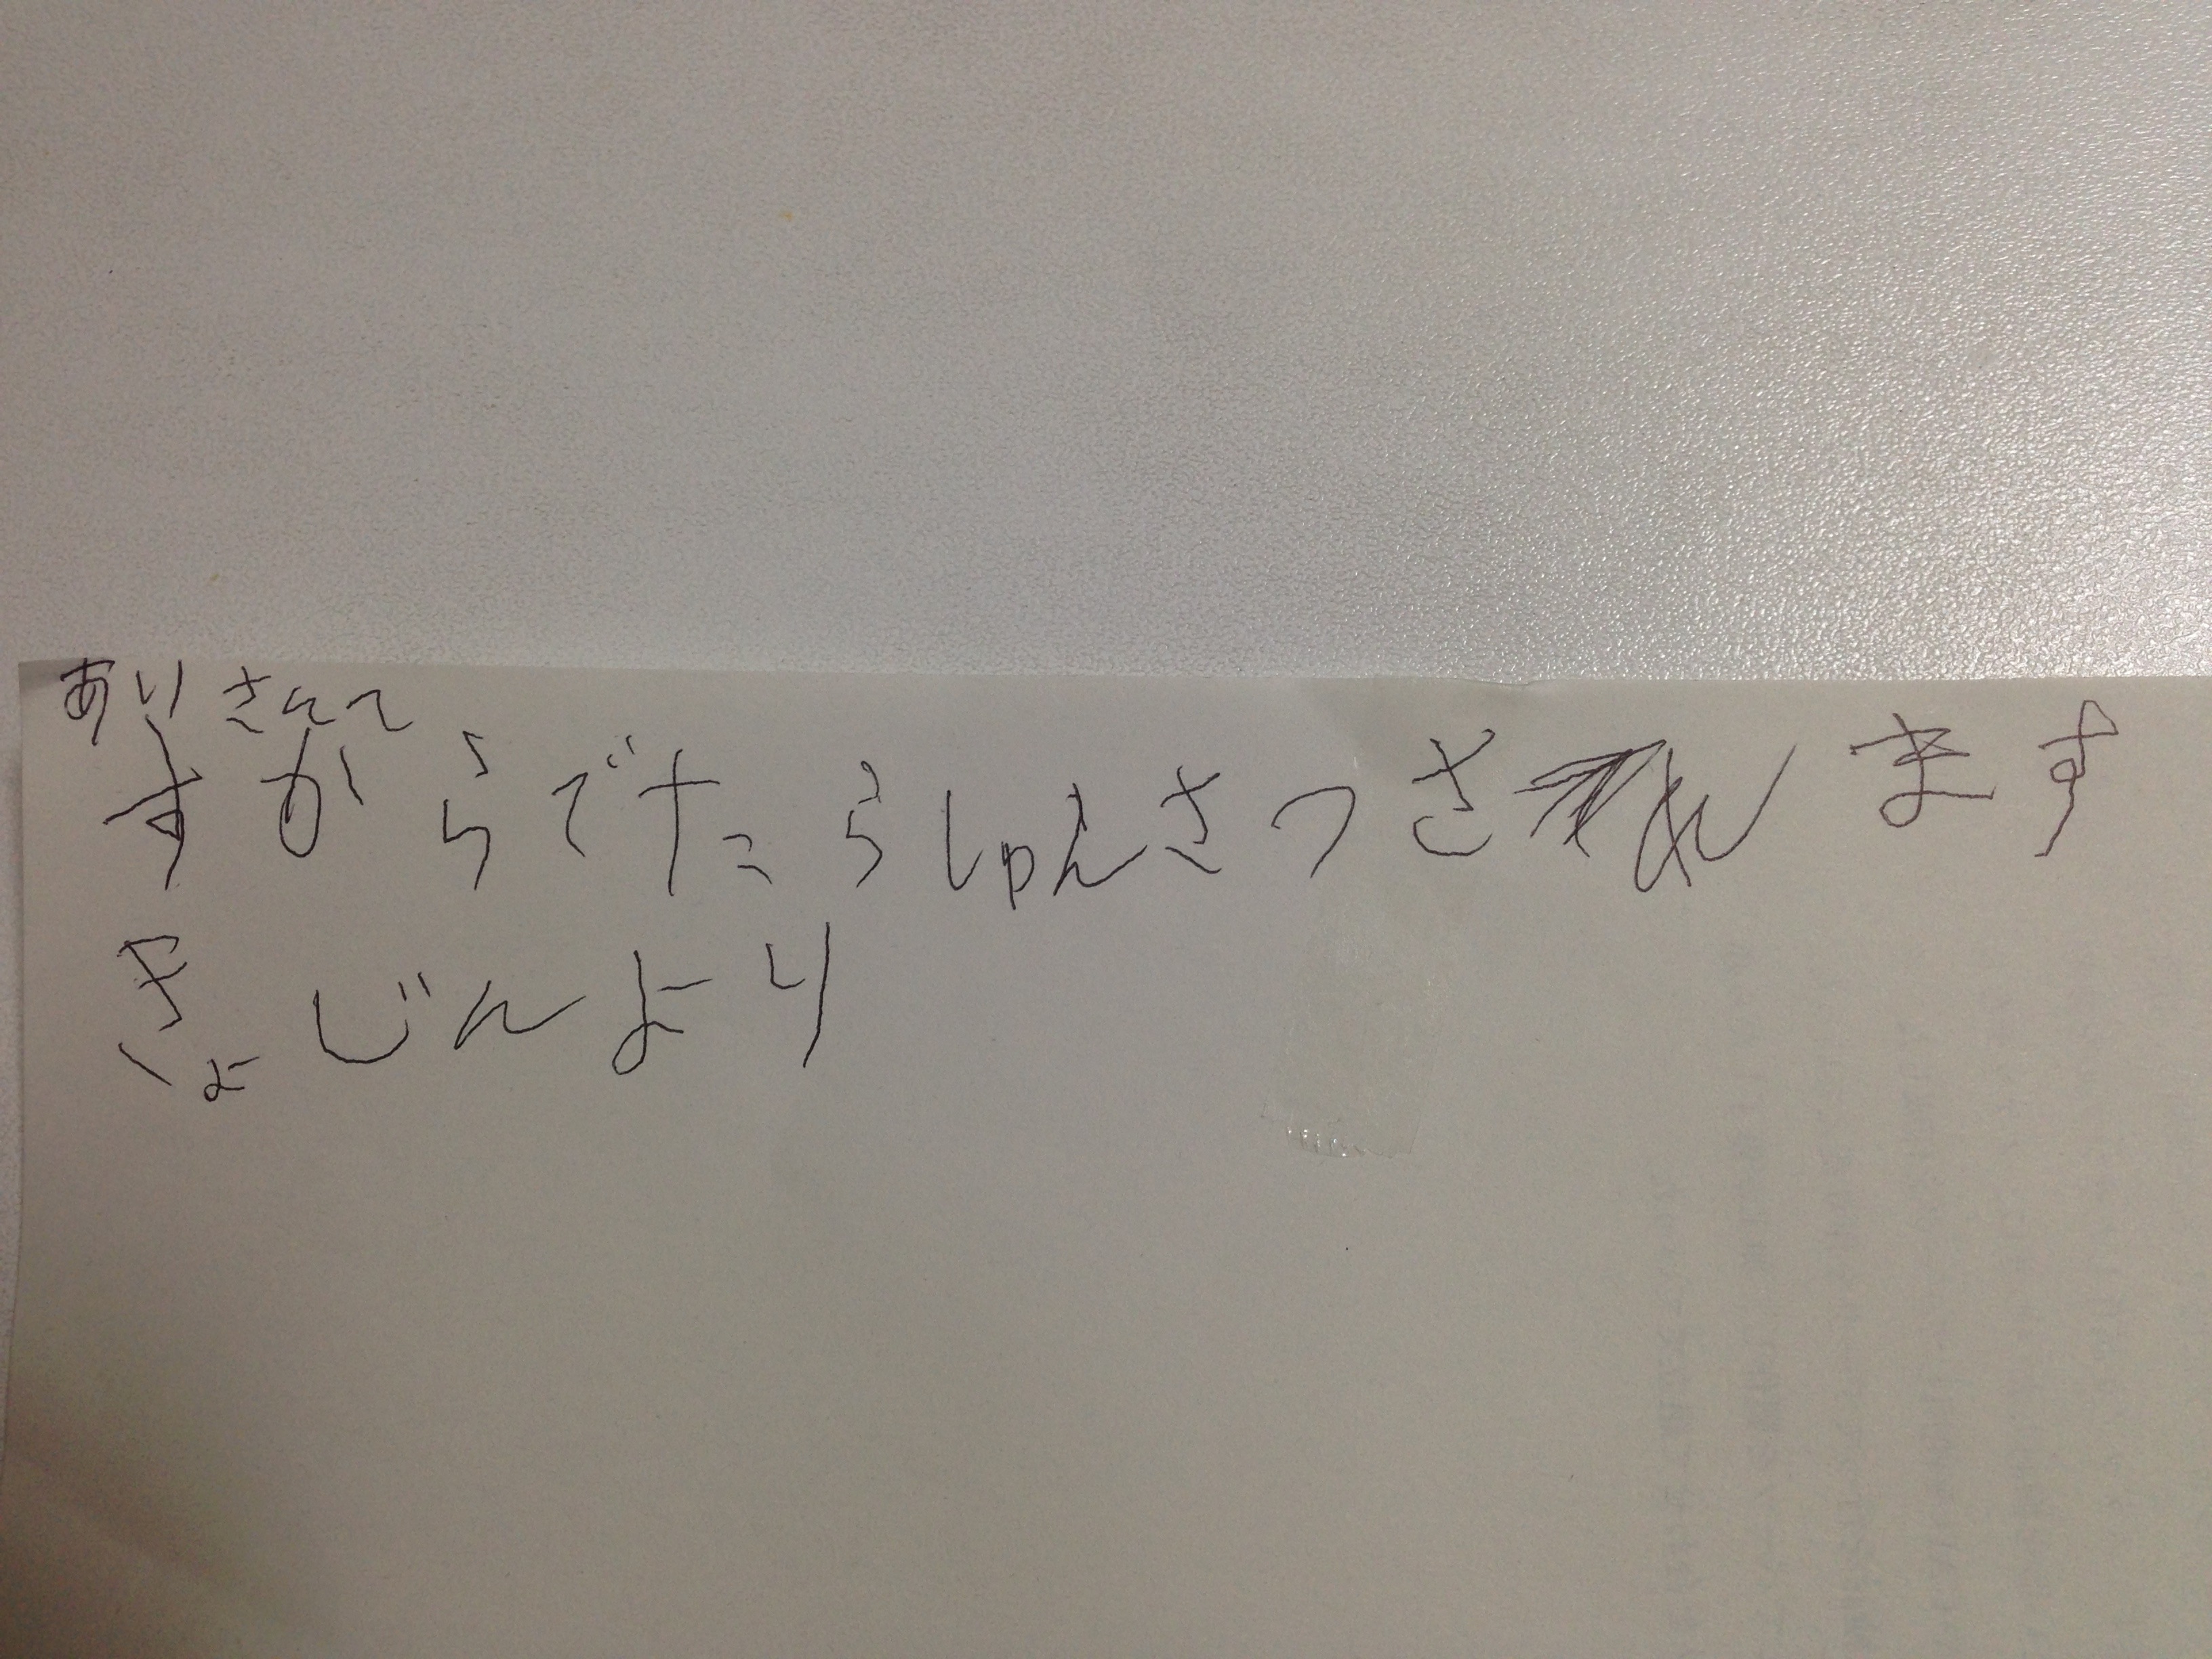 ありさんへ
すからでたらしゅんさつされます
きょじんより